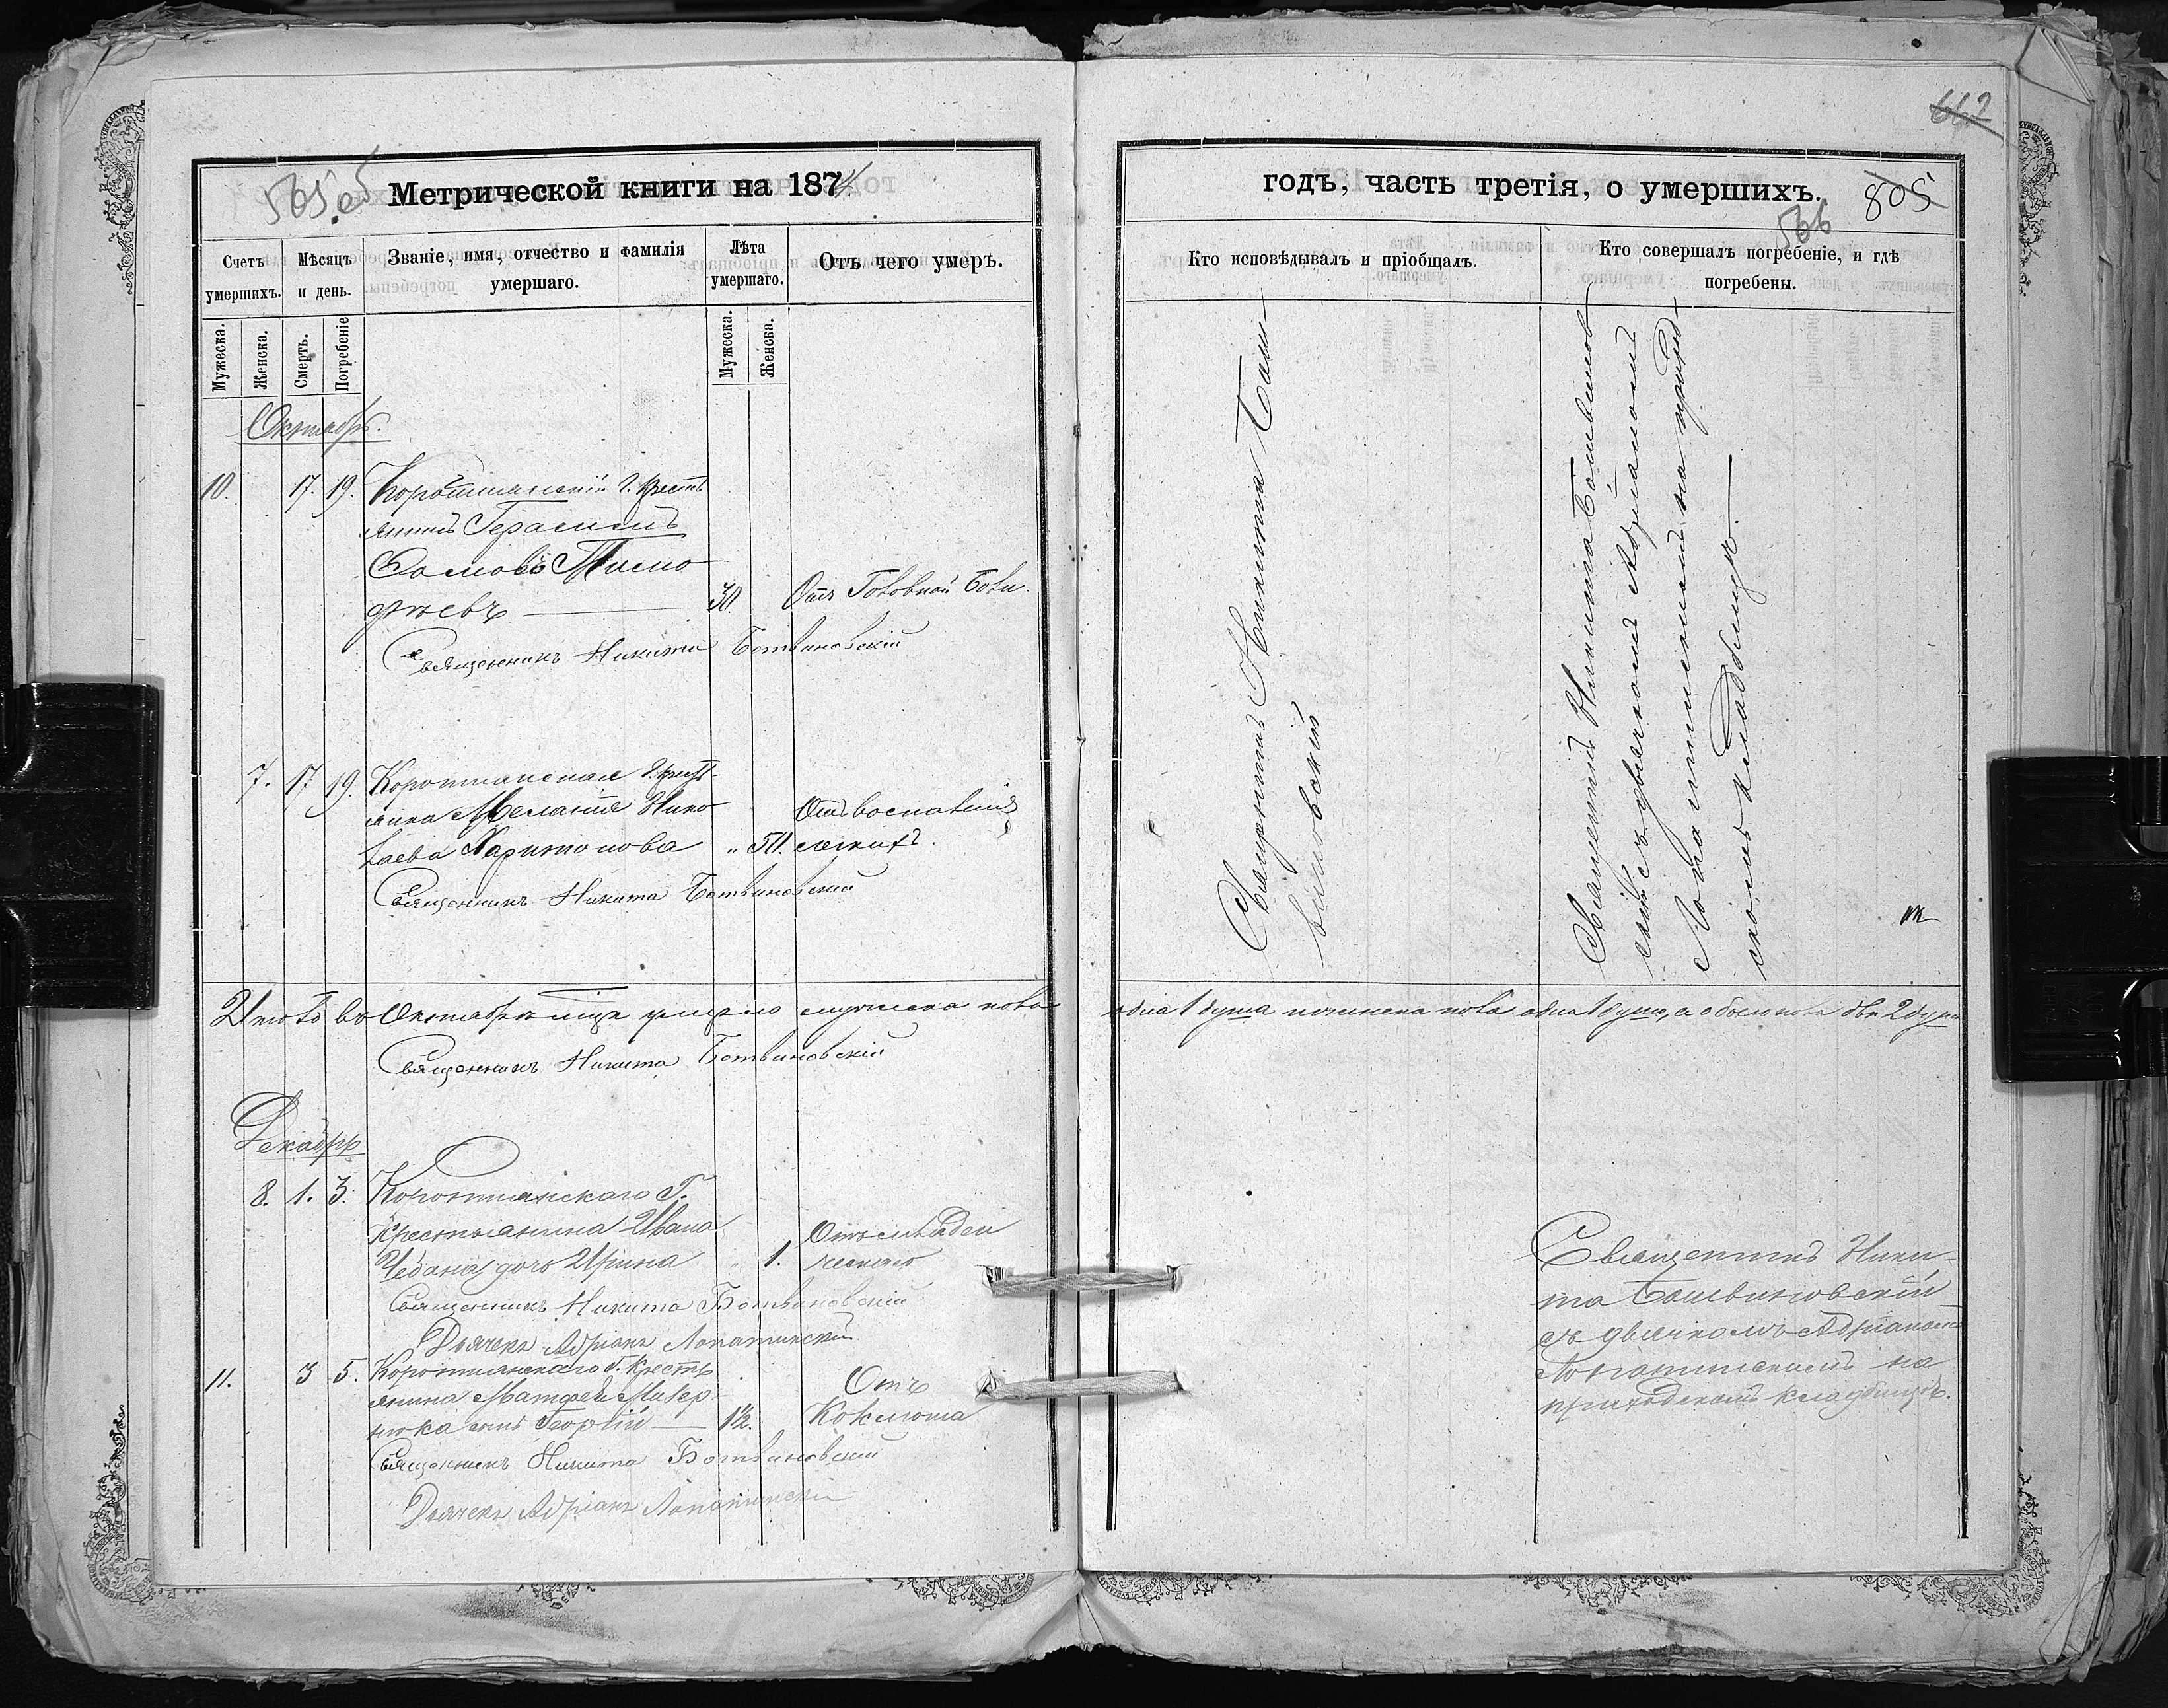 505 об
Метрической книги на 1874
Счетъ умершихъ.
Мѣсяцъ и день.
Званіе, имя, отчество и фамилія умершаго.
Лѣта умершаго.
Отъ чего умеръ.
Мужеска.
Женска.
Смерть.
Погребеніе
Мужеска.
Женска.
Октябрь.
10. 17. 19. Коротнянскій Г. Кресть
янинъ Герасимъ
30. Отъ Головной боли.
Священникъ Никита Ботвиновскій
7. 17 19. Коротнянская Г. Крестъ-
янка Меланія Нико
Отъ воспаленія
лаева Харитонова „ 50. легкихъ.
Священникъ Никита Ботвиновскій
Итого въ Октябрѣ мцѣ умерло мужеска пола
Священникъ Никита Ботвиновскій
Декабрь
8. 1. 3. Коротнянскаго Г.
Крестьянина Ивана
Чебана дочь Ирина „ 1.
Священникъ Никита Ботвиновскій
Дьячекъ Адріанъ Лопатинскій
11. 3 5. Коротнянскаго Г. Кресть
янина Матфея
Отъ
сынъ Георгій 1½. Коклюша
Священникъ Никита Ботвиновскій
Дьячекъ Адріанъ Лопатинскій
662
годъ, часть третія, о умершихъ.
805
566
Кто исповѣдывалъ и пріобщалъ.
Кто совершалъ погребеніе, и гдѣ погребены.
Священникъ Никита Бот-
виновскій
Священникъ Никита Ботвинов-
скій съ дьячкомъ Адріаномъ
Лопатинскимъ на приход-
скомъ кладбищѣ.
одна 1 душа и женска пола одна 1 душа, а обоего пола двѣ 2 души
Священникъ Ники-
та Ботвиновскій
съ дьячкомъ Адріаномъ
Лопатинскимъ на
приходскомъ кладбищѣ.